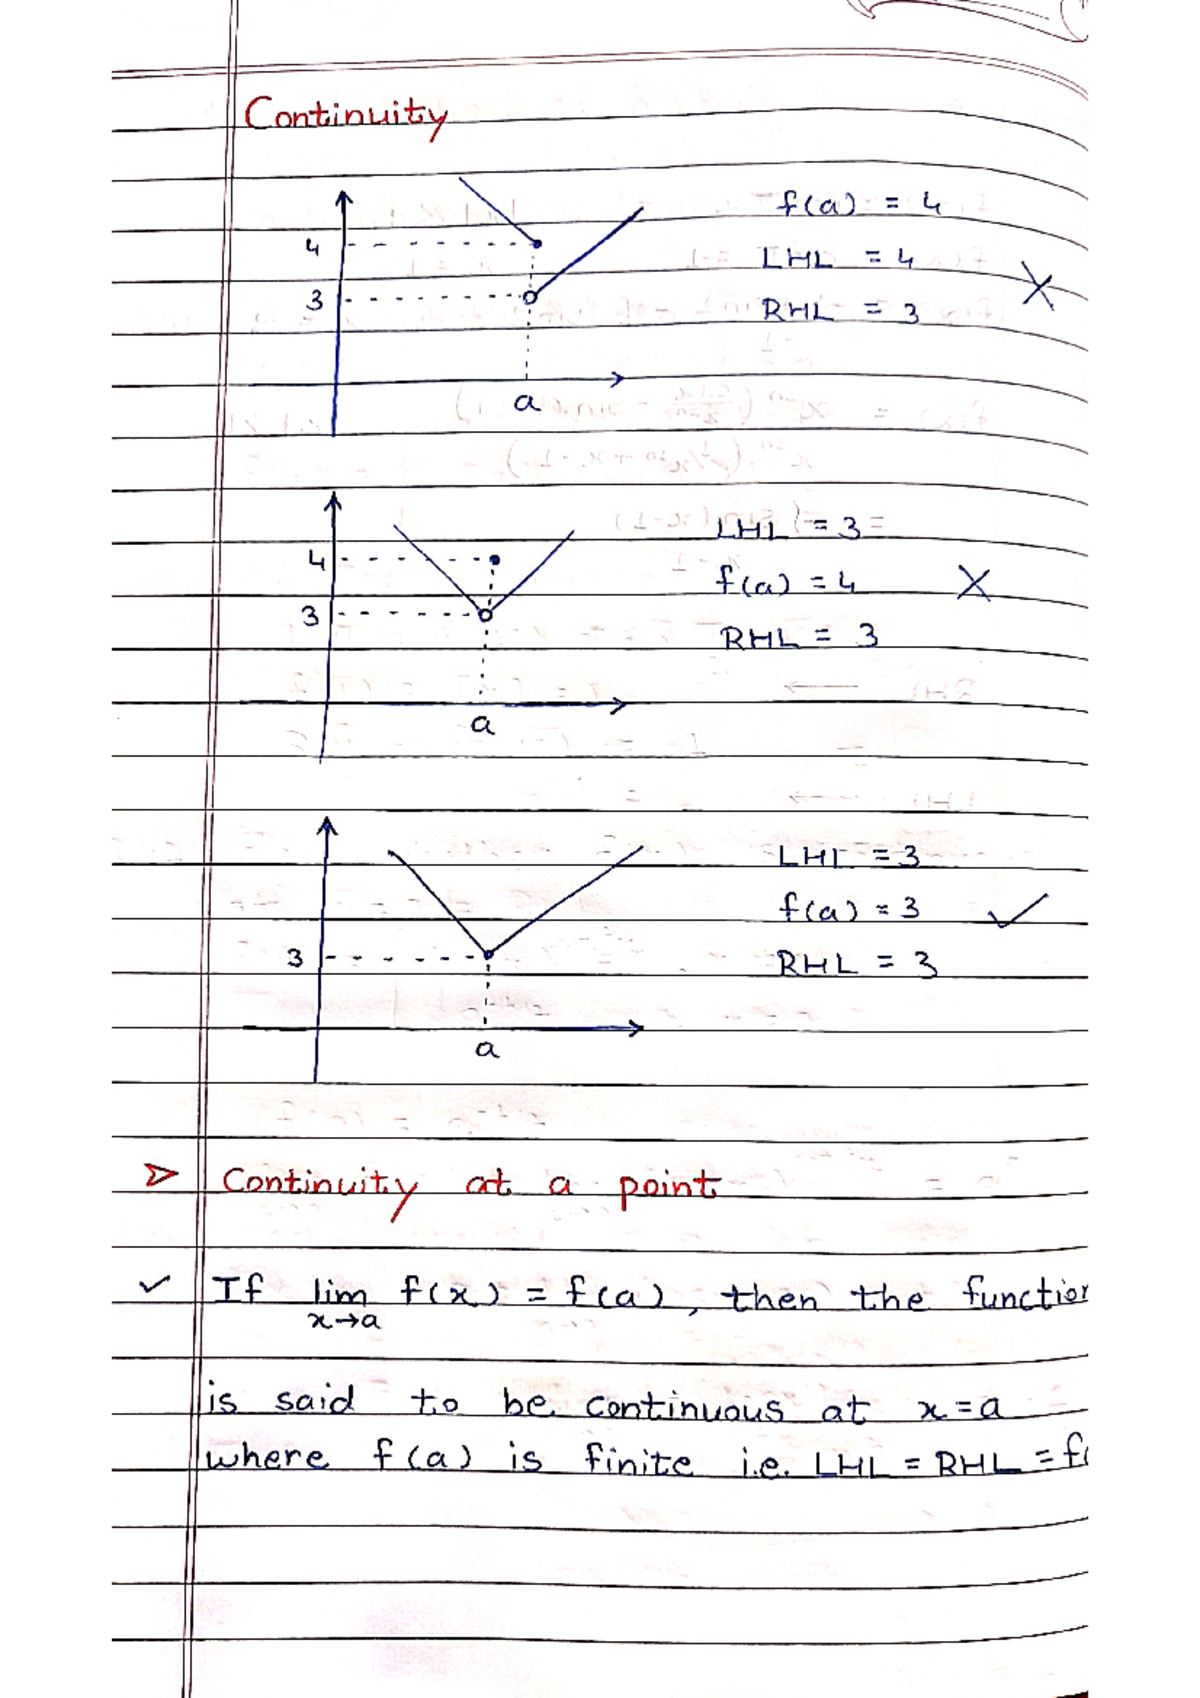 Continuity
f(a) = 4
4
LHL = 4
3
RHL = 3
a
LHL = 3
4
f(a) = 4
3
RHL = 3
a
LHL = 3
f(a) = 3
3
RHL = 3
a
Continuity at a point
✓ If lim f(x) = f(a), then the function
x→a
is said to be continuous at x = a
where f(a) is finite i.e. LHL = RHL = f(